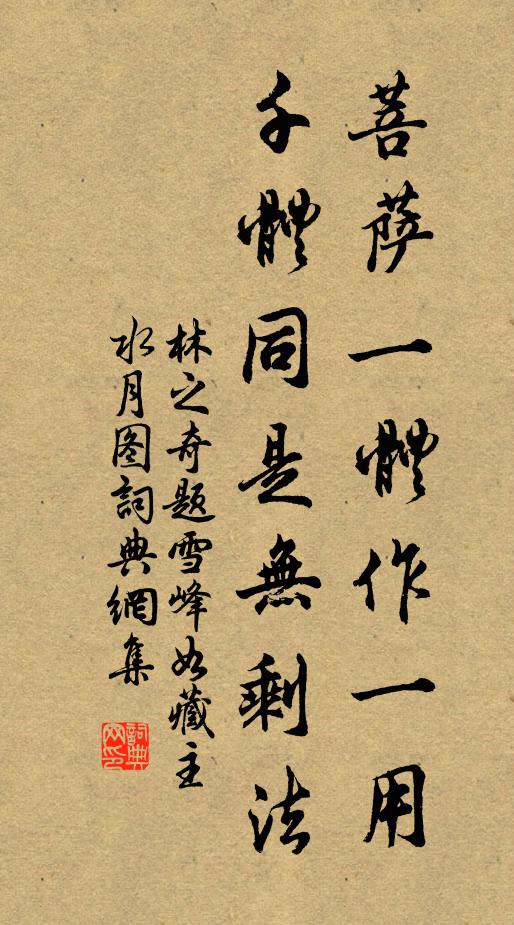 菩薩一體作一用
千體同是無剩法
林之奇题雪峰如藏主
水月图詞典網集
詞典网印